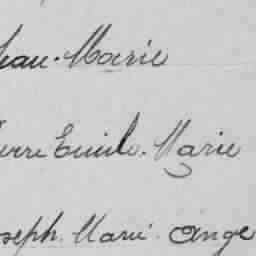 Jean-Marie
Pierre Emile-Marie
Joseph Marie Ange